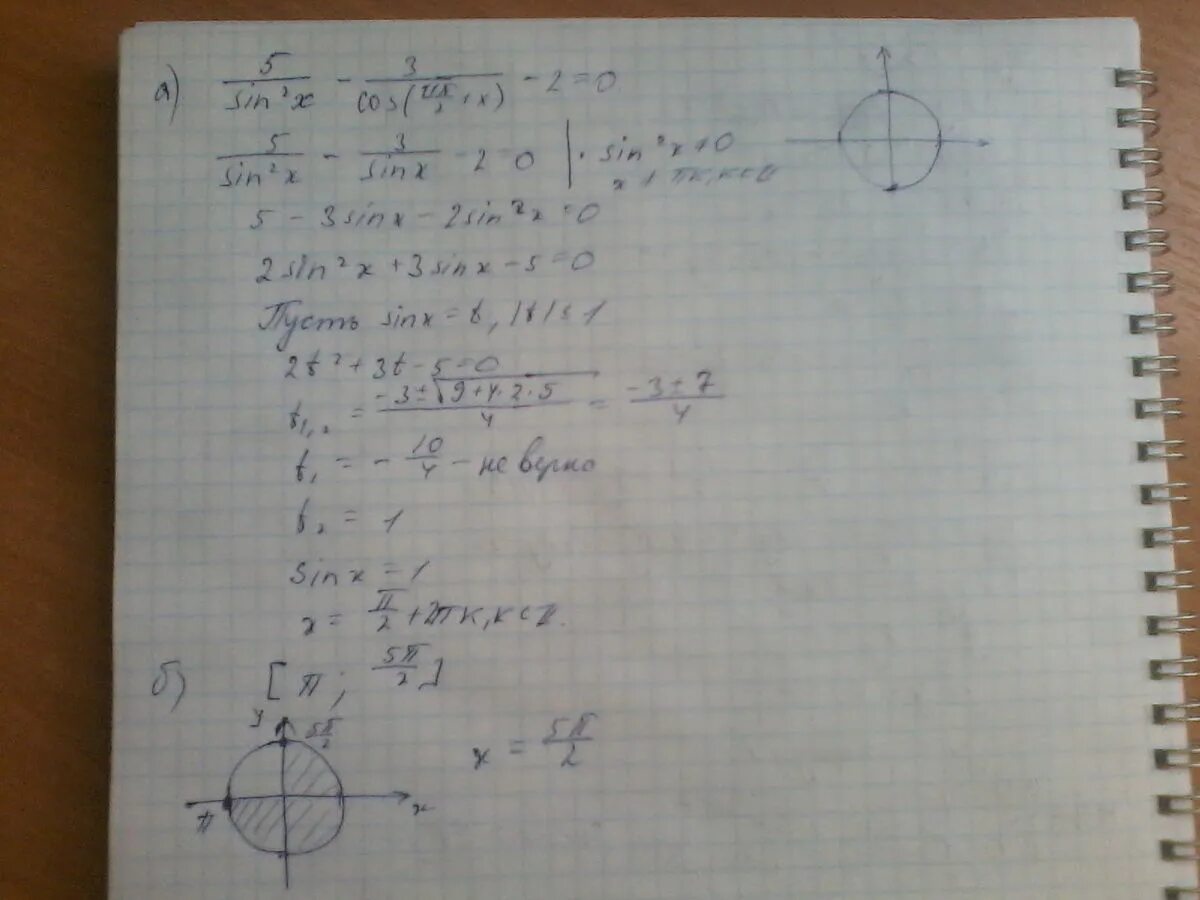 а) 5/sin²x - 3/cos( /2 + x) - 2 = 0
5/sin²x - 3/sinx - 2 = 0 | · sin²x ≠ 0
x ≠ πk, k∈Z
5 - 3sinx - 2sin²x = 0
2sin²x + 3sinx - 5 = 0
Пусть sinx = t, |t| ≤ 1
2t² + 3t - 5 = 0
t₁,₂ = (-3 ± √(9+4·2·5))/4 = (-3 ± 7)/4
t₁ = - 10/4 - не верно
t₂ = 1
sinx = 1
x = π/2 + 2πk, k∈Z.
б) [π; 5π/2]
y 5π/2
x = 5π/2
π x